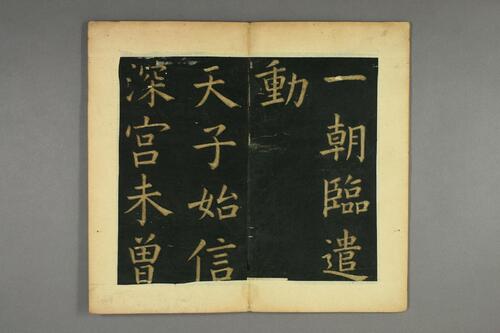 一朝臨遣
動
天子始信
深宫未曽